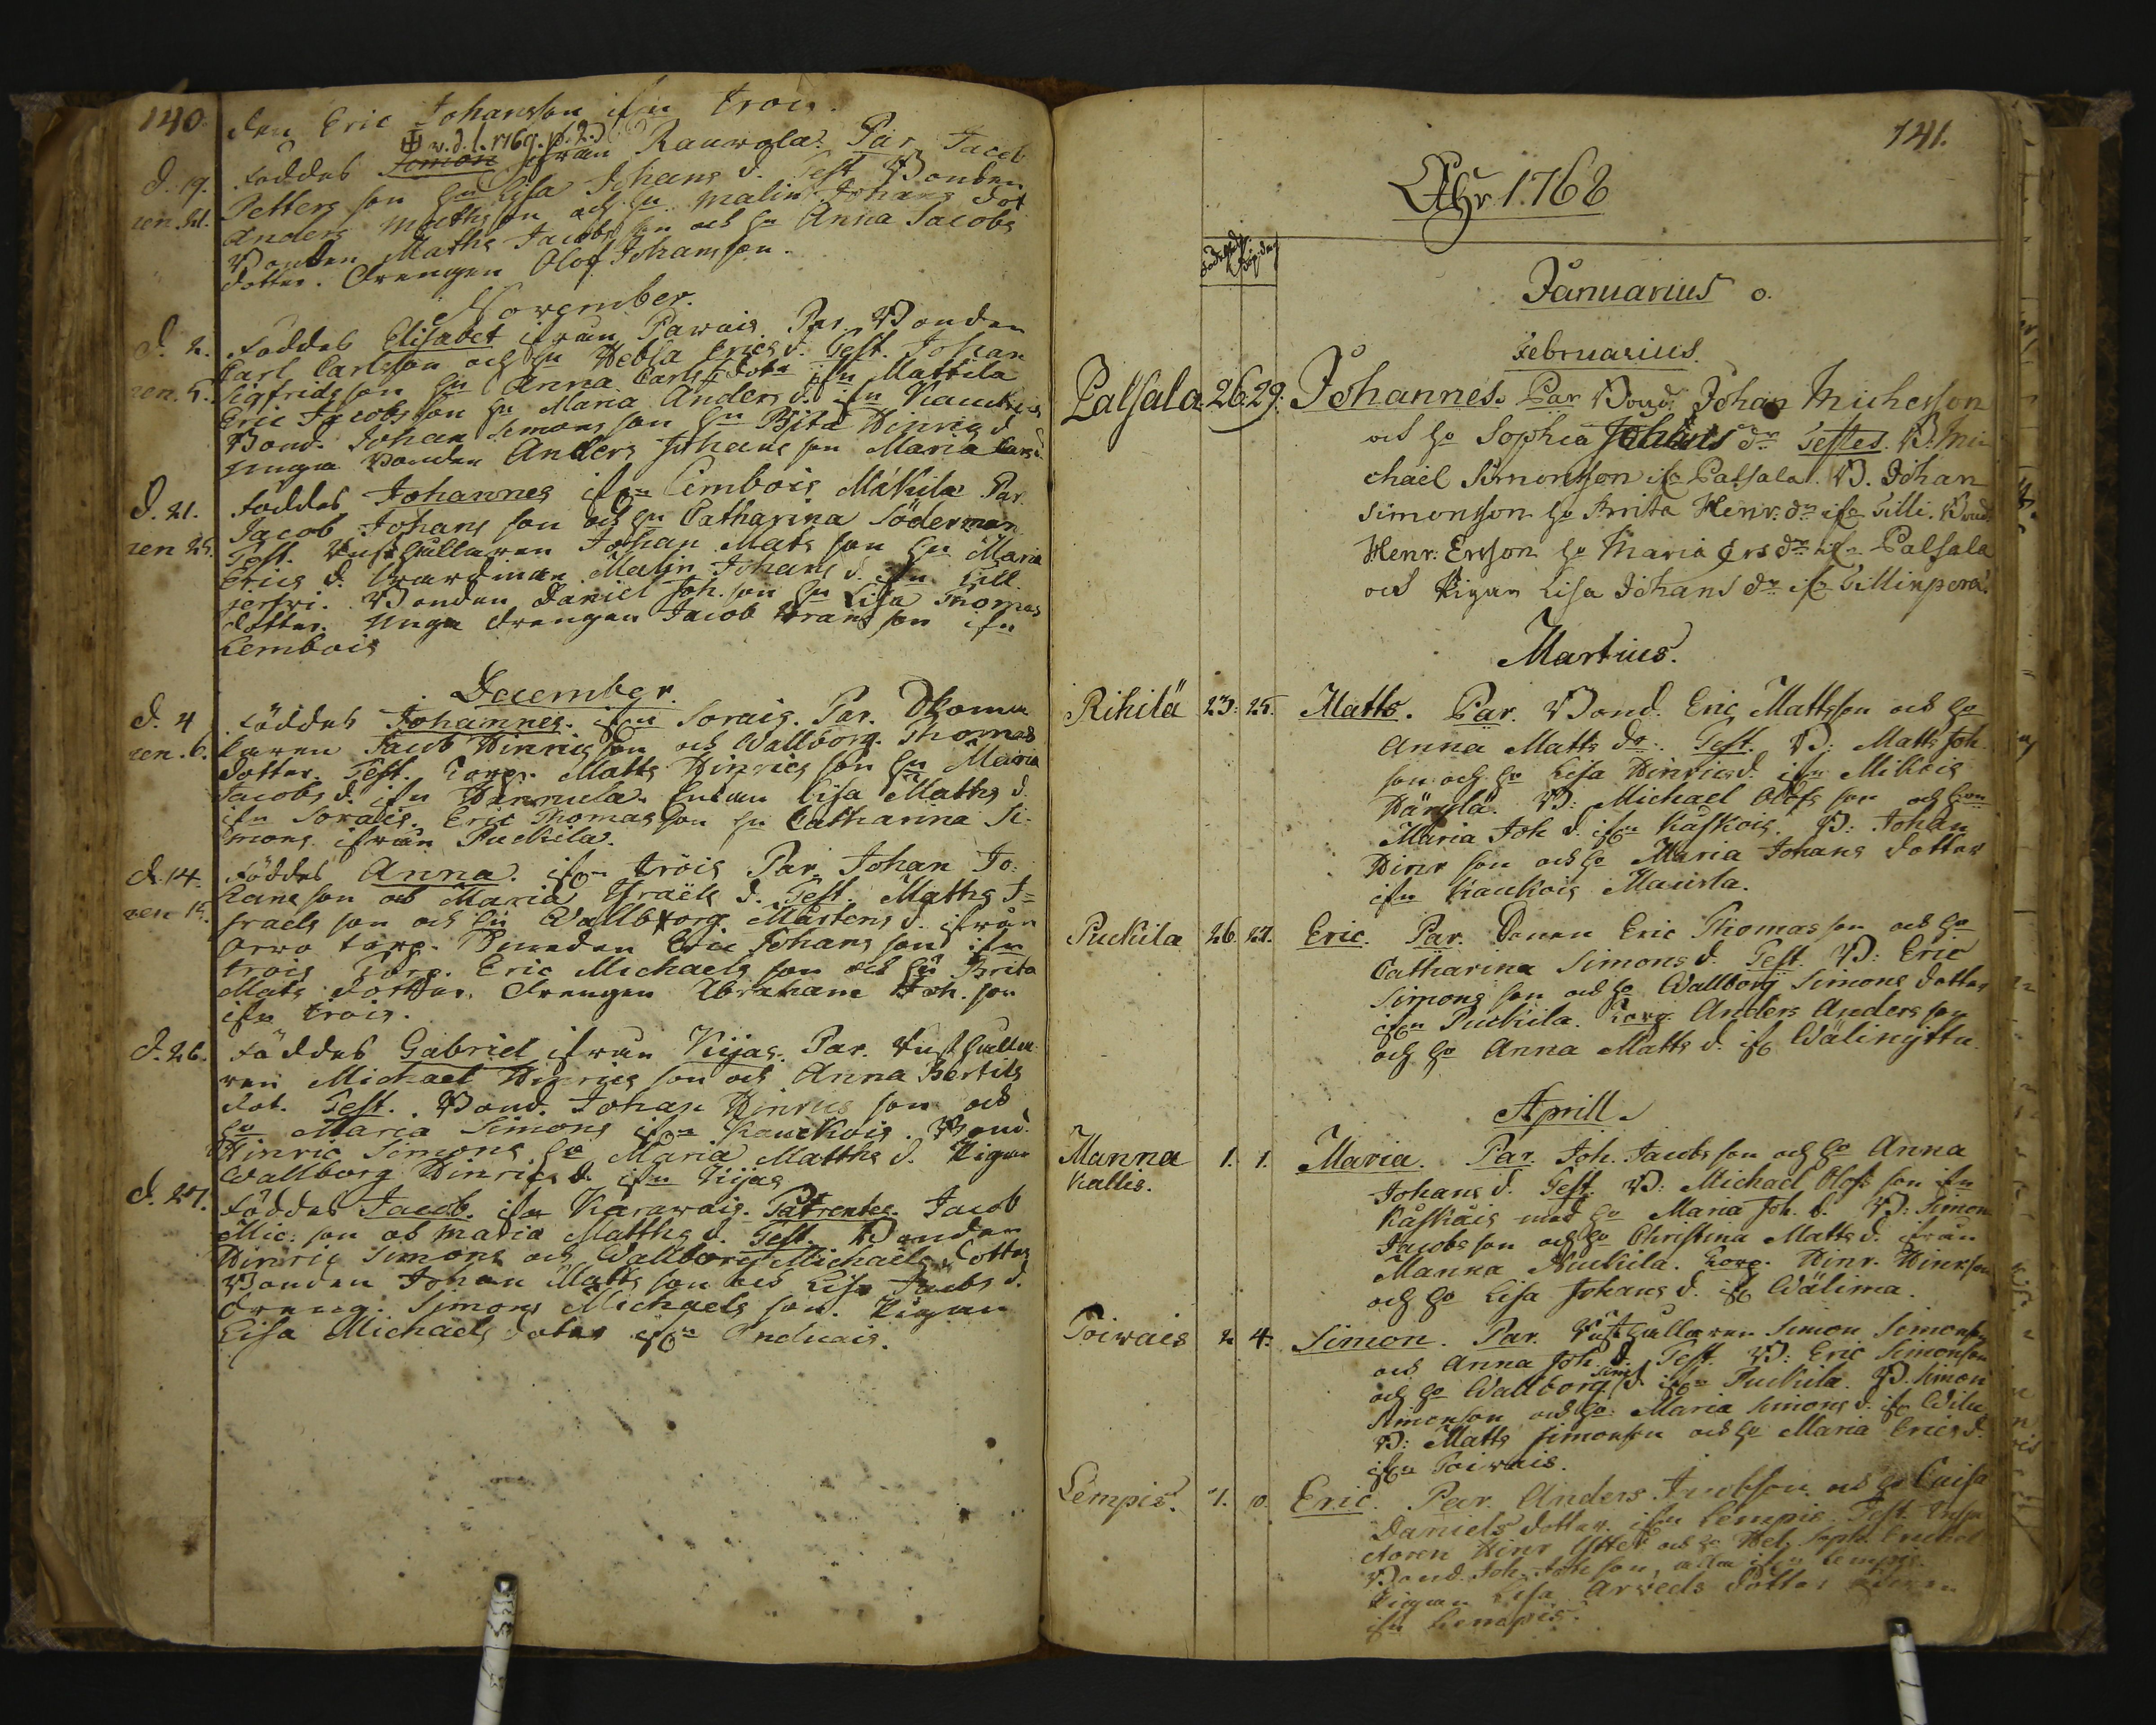 140.
den Eric Johansson ifrn trois.
v. d. 1. 1769. p. 2.
d. 19. Föddes Simon ifrån Rauvola. Par. Jacob
Petters son hu Lisa Johans d. Test. Bonden
ren. 21. Anders Mathsson och hu Malin Johans dot
Bonden Maths Jacobsson och hu Anna Jacobs
dotter. Drengen Olof Johansson.
November.
d. 2. Föddes Elisabet ifrån Parvais. Par. Bonden
Carl Carlsson och hu Hebla Erics d. Test. Johan
ren. 5. Sigfridsson hu Anna Carls dotr ifrn Mattila
Eric Jacobsson hu Maria Anders d. ifrn
Bond. Johan Simons son hu Brita Hinrics d.
unga Bonden Anders Johans son Maria
d. 21. Föddes Johannes ifrn Lembois Mäkilä Par.
Jacob Johans son och hu Catharina Söderman
ren 25. Test. Johan Mats son hu Maria
Erics d. Malin Johans d. ifrn Till
Bonden Daniel Joh. son hu Lisa Thomas
dotter. Unga drengen Jacob son ifrn
Lembois
December.
d. 4 Föddes Johannes. ifrn Sorais. Par.
ren. 6. Jacob Hinricsson och Wallborg Thomas
dotter. Test. Torp. Matts Hinrics son hu Maria
Jacobs d. ifrn Hannula. Lisa Maths d.
ifrn Sorais. Eric Thomasson hu Catharina Si-
mons ifrån Puckila.
d. 14. Föddes Anna. ifrn trois Par. Johan Jo-
hans son och Maria Israels d. Test. Maths I=
ren 15. sraels son och hu Wallborg Mårtens d. ifrån
torp. Eric Johans son ifrn
trois Torp. Eric Michaels son och hu Brita
Mats dotter. Drengen Abraham Joh. son
ifrn trois.
d. 26. Föddes Gabriel ifrån Kijas. Par.
ren Michael Hinrics son och Anna Bertils
dot. Test. Bond. Johan Hinrics son och
hu Maria Simons ifrn Kauckois. Bond.
Hinric Simons hu Maria Matths d. Pigan
Wallborg Hinrics d. ifrn Kijas
d. 27. Föddes Jacob. ifrn Karawais. Parentes. Jacob
Mic. son och Maria Matths d. Test. Bonden
Hinric Simons och Wallborg Michaels dotter
Bonden Johan Matts son och Lisa Jacobs d.
dreng. Simon Michaels son. Pigan
Lisa Michaels dotter ifrn
141.
Åhr 1768
Januarius o.
Februarius.
Palsala 26. 29. Johannes. Par Bond. Johan Michesson
och hu Sophia Johans dr Testes. B. Mi-
chael Simonsson ifr Palsala. B. Johan
Simonsson hu Brita Henr. dr ifr Tilli. Bond
Henr: Ersson hu Maria Ers dr ifr Palsala
och Pigan Lisa Johans dr ifr Tillinperä.
Martius.
Rihitä 23. 25. Matts. Par. Bond. Eric Mattsson och hu
Anna Matts dr. Test. B: Matts Joh.
son och hu Lisa Hinrics d. ifrn Mikois
Härylä. B: Michael Olofs son och hu
Maria Joh d. ifrn Kaskois. B: Johan
Hinr son och hu Maria Johans dotter
ifrn Kaukois Maurla.
Puckila 26. 27. Eric. Par. Eric Thomas son och hu
Catharina Simons d. Test. B: Eric
Simons son och hu Wallborg Simons dotter
ifrn Puckila. Torp. Anders Anders son
och hu Anna Matts d. ifr Wälingittu.
Aprill.
Manna 1. 1. Maria. Par. Joh. Jacobsson och hu Anna
Kallis. Johans d. Test. B: Michael Olofs son ifrn
Kaskois med hu Maria Joh. d. B: Simon
Jacobs son och hu Christina Matts d. ifrån
Manna Torp. Hinr. Hinrson
och hu Lisa Johans d. ifr Wälima.
Poivais 2 4. Simon. Par. Simon Simonson
och Anna Joh. d. Test. B: Eric Simonson
och hu Wallborg Sim. d. ifrn Puckila. B. Simon
Simonson och hu Maria Simons d. ifr
B: Matts Simonson och hu Maria Erics d.
ifrn Poivais.
Lempis. 7. 10. Eric. Par. Anders Jacobson och hu Caisa
Daniels dotter. ifrn Lempis. Test.
Hinr och hu Hel. Soph.
Bond. Joh. Joh son, ifrn Lempis.
Pigan Lisa Arveds dotter
ifrn Lempis.